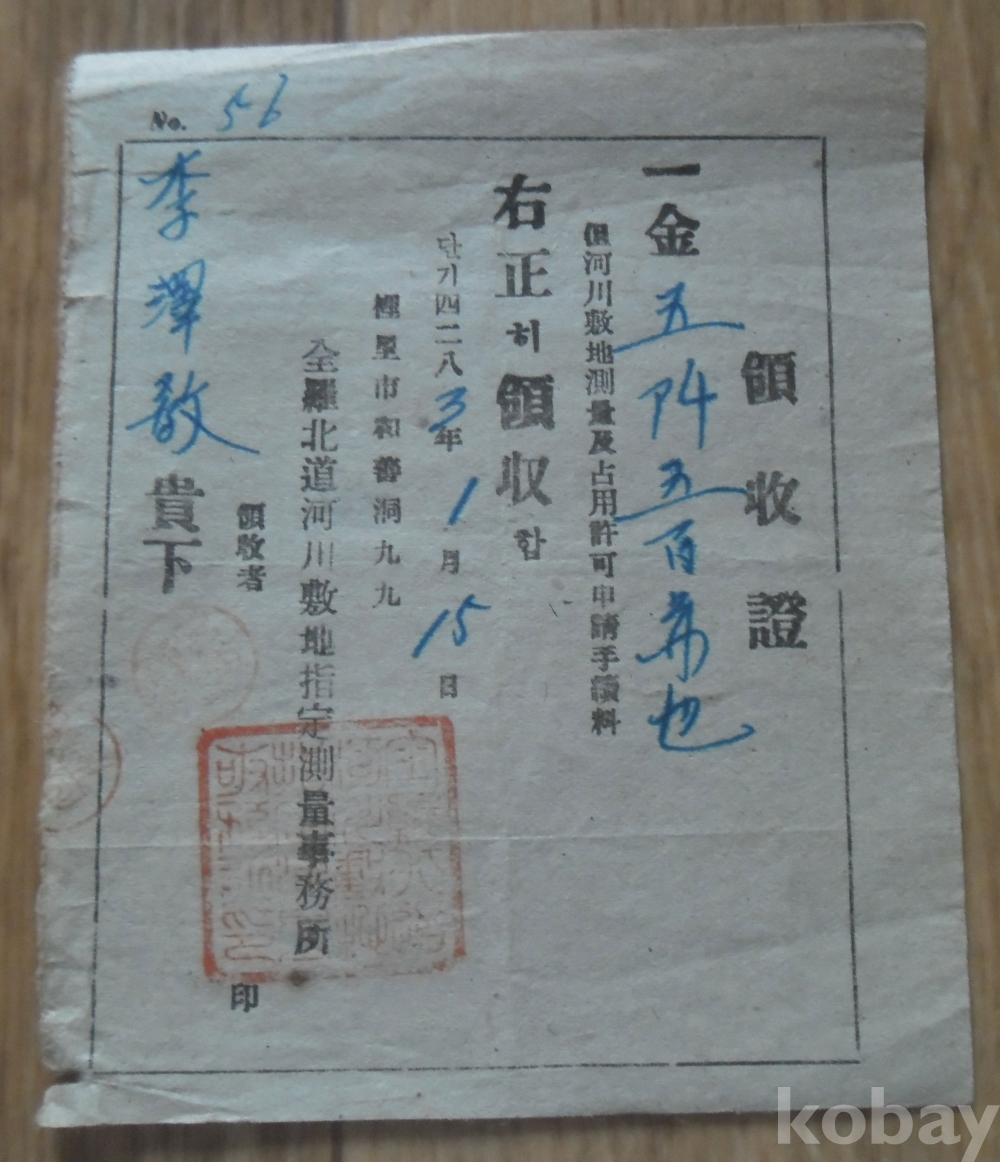 No. 56
領收證
一金 五阡五百원也
但河川敷地測量及占用許可申請手續料
右正히領収함
단기四二八3年 1月 15日
裡里市和善洞九九
全羅北道河川敷地指定測量事務所
領收者 印
李澤敎 貴下
kobay